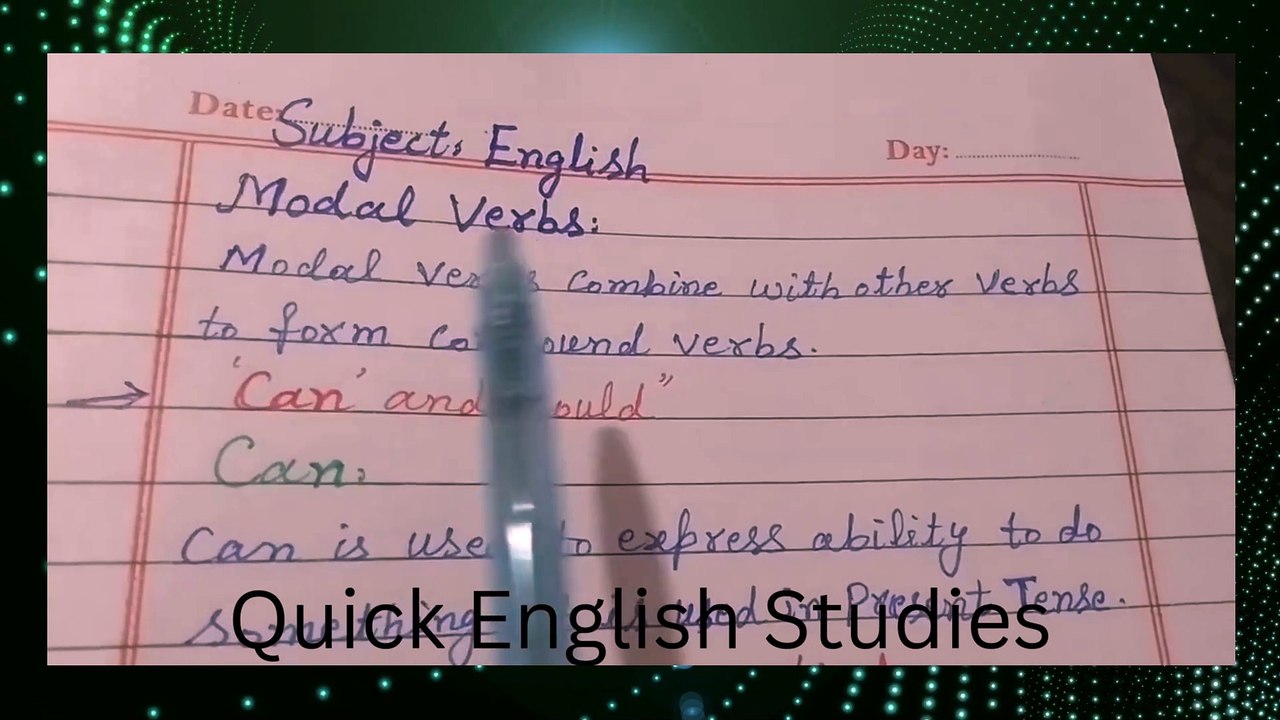 Date:
Subject, English
Day:
Modal Verbs:
Modal Verbs Combine with other Verbs
to form compound verbs.
'Can' and Could"
Can,
Can is used to express ability to do
something is used in Present Tense.
Quick English Studies